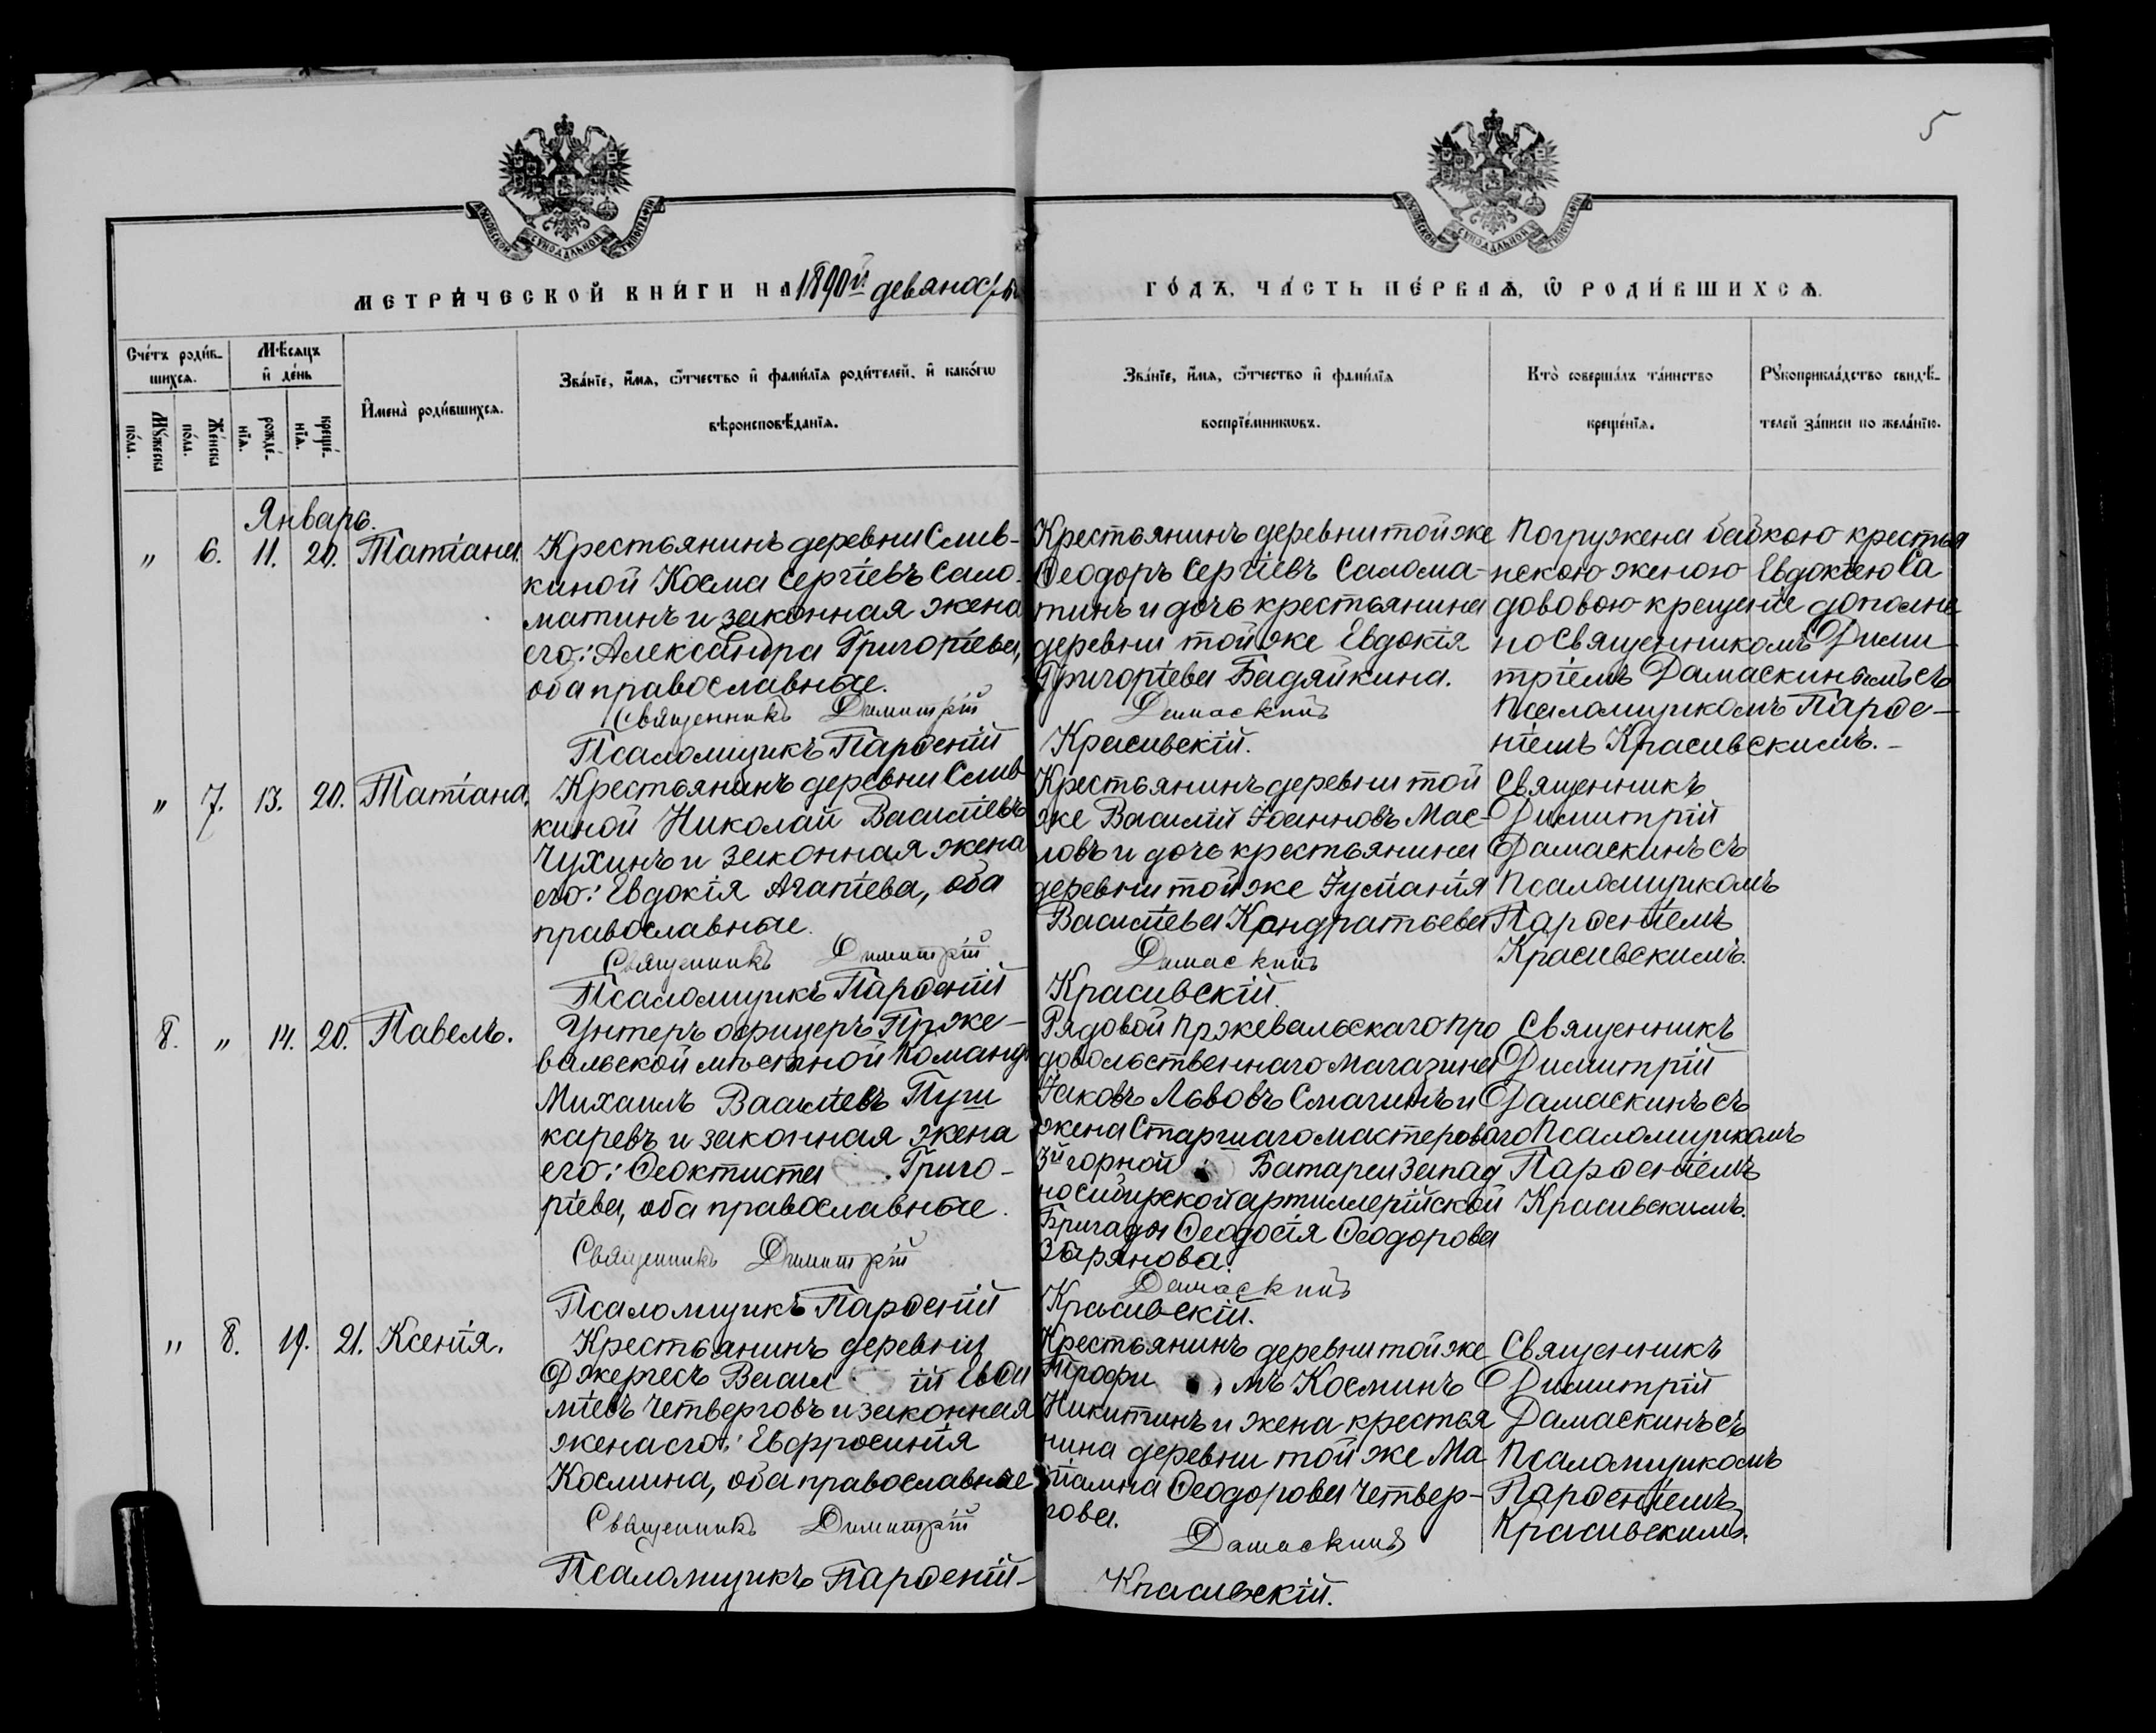 5
МОСКОВСКОЙ СѴНОДАЛЬНОЙ ТИПОГРАФІИ
МОСКОВСКОЙ СѴНОДАЛЬНОЙ ТИПОГРАФІИ
МЕТРИ́ЧЕСКОЙ КНИ́ГИ НА 1890й девяносты
ГО́ДЪ, ЧА́СТЬ ПЕ́РВАѦ, Ѿ РОДИ́ВШИХСѦ.
Сче́тъ роди́в-
шихсѧ.
Мꙋжеска
по́ла.
Же́нска
по́ла.
Мѣ́сѧцъ
и҆ де́нь
рожде́-
нїѧ.
креще́-
нїѧ.
И҆мена̀ роди́вшихсѧ.
Зва́нїе, и҆́мѧ, ѻ҆́тчество и҆ фами́лїѧ роди́телей, и҆ како́гѡ
вѣроисповѣ́данїѧ.
Зва́нїе, и҆́мѧ, ѻ҆́тчество и҆ фами́лїѧ
воспрїе́мникѡвъ.
Кто̀ соверша́лъ та́инство
креще́нїѧ.
Рꙋкоприкла́дство свидѣ́-
телей за́писи по жела́нїю.
Январь.
" 6. 11. 20. Татіана.
Крестьянинъ деревни Слив-
киной Косма Сергіевъ Сало-
матинъ и законная жена
его: Александра Григоріева,
оба православные.
Священникъ Димитрій
Псаломщикъ Парѳеній
Крестьянинъ деревни той же
Ѳеодоръ Сергіевъ Салома-
тинъ и дочь крестьянина
деревни той же Евдокія
Григоріева Бадяйкина.
Дамаскинъ
Красивскій.
Погружена бабкою крестья
нскою женою Евдокіею Са
дововою крещеніе дополне
но Священникомъ Дими
тріемъ Дамаскинымъ съ
Псаломщикомъ Парѳе-
ніемъ Красивскимъ.-
" 7. 13. 20. Татіана.
Крестьянинъ деревни Слив
киной Николай Василіевъ
Чухинъ и законная жена
его: Евдокія Агапіева, оба
православные.
Священникъ Димитрій
Псаломщикъ Парѳеній
Крестьянинъ деревни той
же Василій Іоанновъ Мас-
ловъ и дочь крестьянина
деревни той же Іустинія
Васильева Кондратьева
Дамаскинъ
Красивскій.
Священникъ
Димитрій
Дамаскинъ съ
Псаломщикомъ
Парѳеніемъ
Красивскимъ.
8. " 14. 20. Павелъ.
Унтеръ офицеръ Прже-
вальской мѣстной команды
Михаилъ Васильевъ Пуш
каревъ и законная жена
его: Ѳеоктиста Григо-
ріева, оба православные.
Священникъ Димитрій
Псаломщикъ Парѳеній
Рядовой Пржевальскаго про
довольственнаго магазина
Іаковъ Львовъ Смагинъ и
жена Старшаго мастероваго
3й горной Батареи Запад
но Сибирской артиллерійской
Бригады Ѳеодосія Ѳеодорова
Дамаскинъ
Красивскій.
Священникъ
Димитрій
Дамаскинъ съ
Псаломщикомъ
Парѳеніемъ
Красивскимъ.
" 8. 19. 21. Ксенія.
Крестьянинъ деревни
Джергесъ Васил ій Евѳи
міевъ Четверговъ и законная
жена его: Евфросинія
Космина, оба православные
Священникъ Димитрій
Псаломщикъ Парѳеній-
Крестьянинъ деревни той же
Трофи мъ Косминъ
Никитинъ и жена крестья
нина деревни той же Ма
Ѳеодорова Четвер-
гова.
Дамаскинъ
Красивскій.
Священникъ
Димитрій
Дамаскинъ съ
Псаломщикомъ
Парѳеніемъ
Красивскимъ.